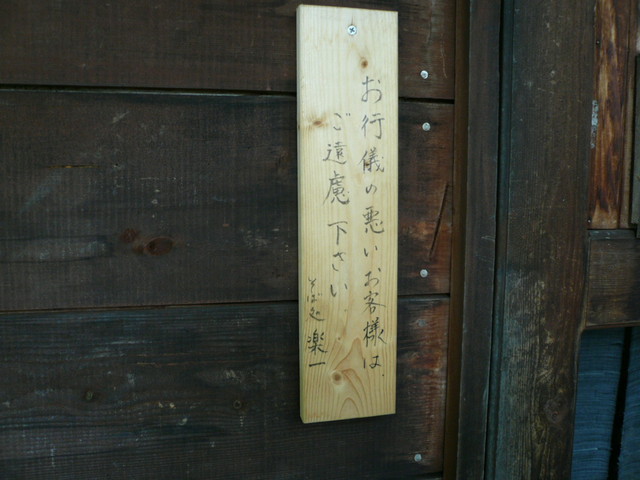 お行儀の悪いお客様は、
ご遠慮下さい.
そば処 楽一